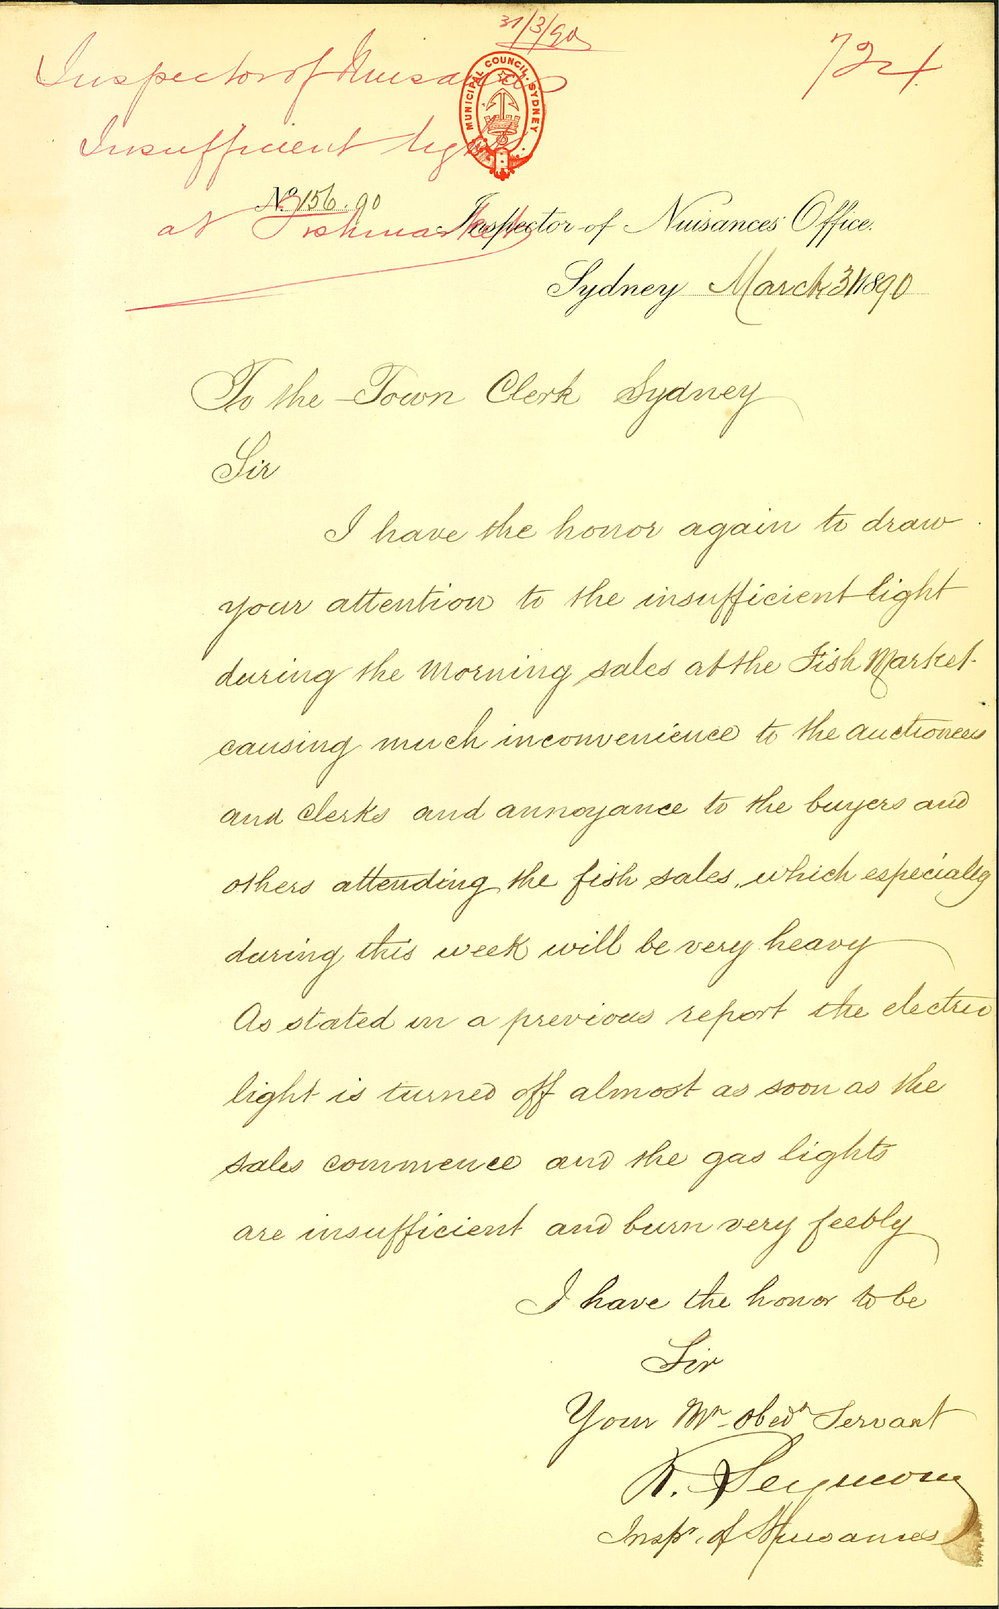 31/3/90
724
Inspector of Nuisances
Insufficient light
at Fishmarket
MUNICIPAL COUNCIL. SYDNEY
No. 156.90
Inspector of Nuisances Office.
Sydney March 31 1890
To the Town Clerk Sydney
Sir
I have the honor again to draw
your attention to the insufficient light
during the morning sales at the Fish Market
causing much inconvenience to the auctioneers
and Clerks and annoyance to the buyers and
others attending the fish sales, which especially
during this week will be very heavy
As stated in a previous report the electric
light is turned off almost as soon as the
sales commence and the gas lights
are insufficient and burn very feebly
I have the honor to be
Sir
Your Mt Obedt Servant
R. Seymour
Inspr. of Nuisances